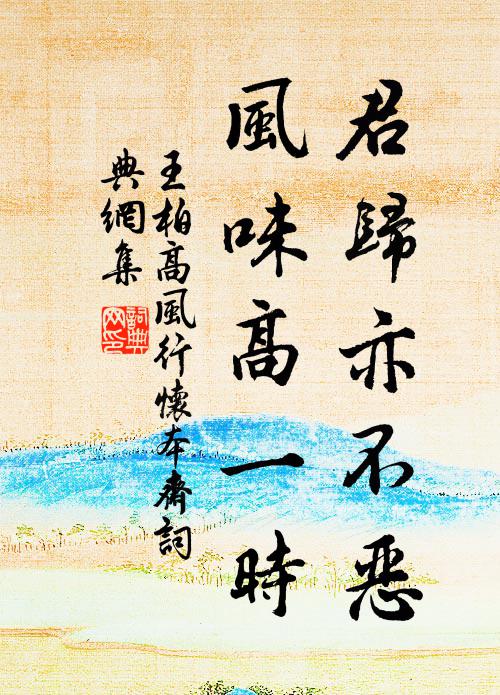 君歸亦不惡
風味高一時
王柏高風行懷本齋詞
典網集
詞典网印